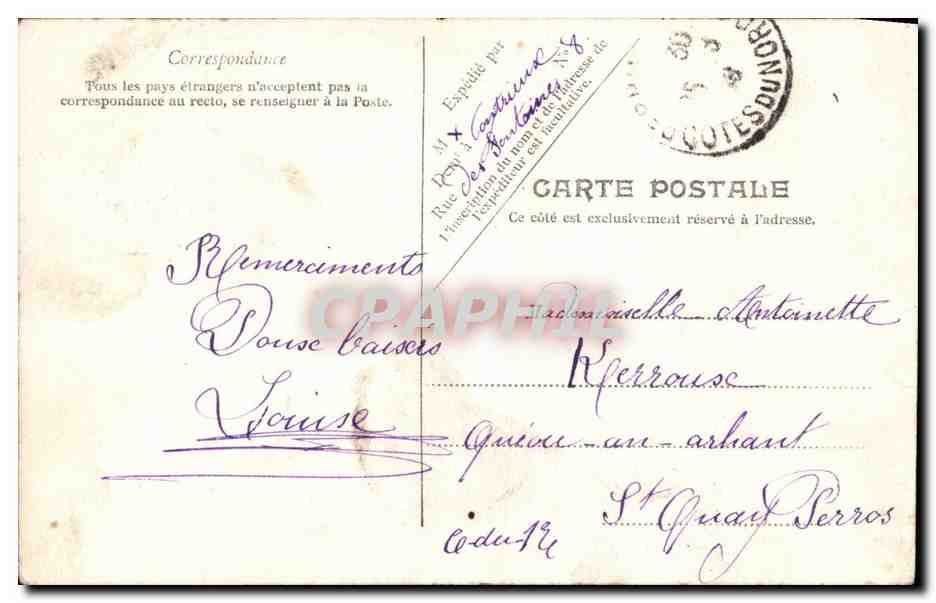 Correspondance
Tous les pays étrangers n'acceptent pas la
correspondance au recto, se renseigner à la Poste.
Remerciments
Douse baisers
Louise
Expédié par
M x
Demt à
Rue des Fontaines N° 8
L'inscription du nom et de l'adresse de
l'expéditeur est facultative.
COTES DU NORD
CARTE POSTALE
Ce côté est exclusivement réservé à l'adresse.
Mademoiselle Antoinette
Kerrouse
an arhant
St Quay Perros
C du N
CPAPHIL